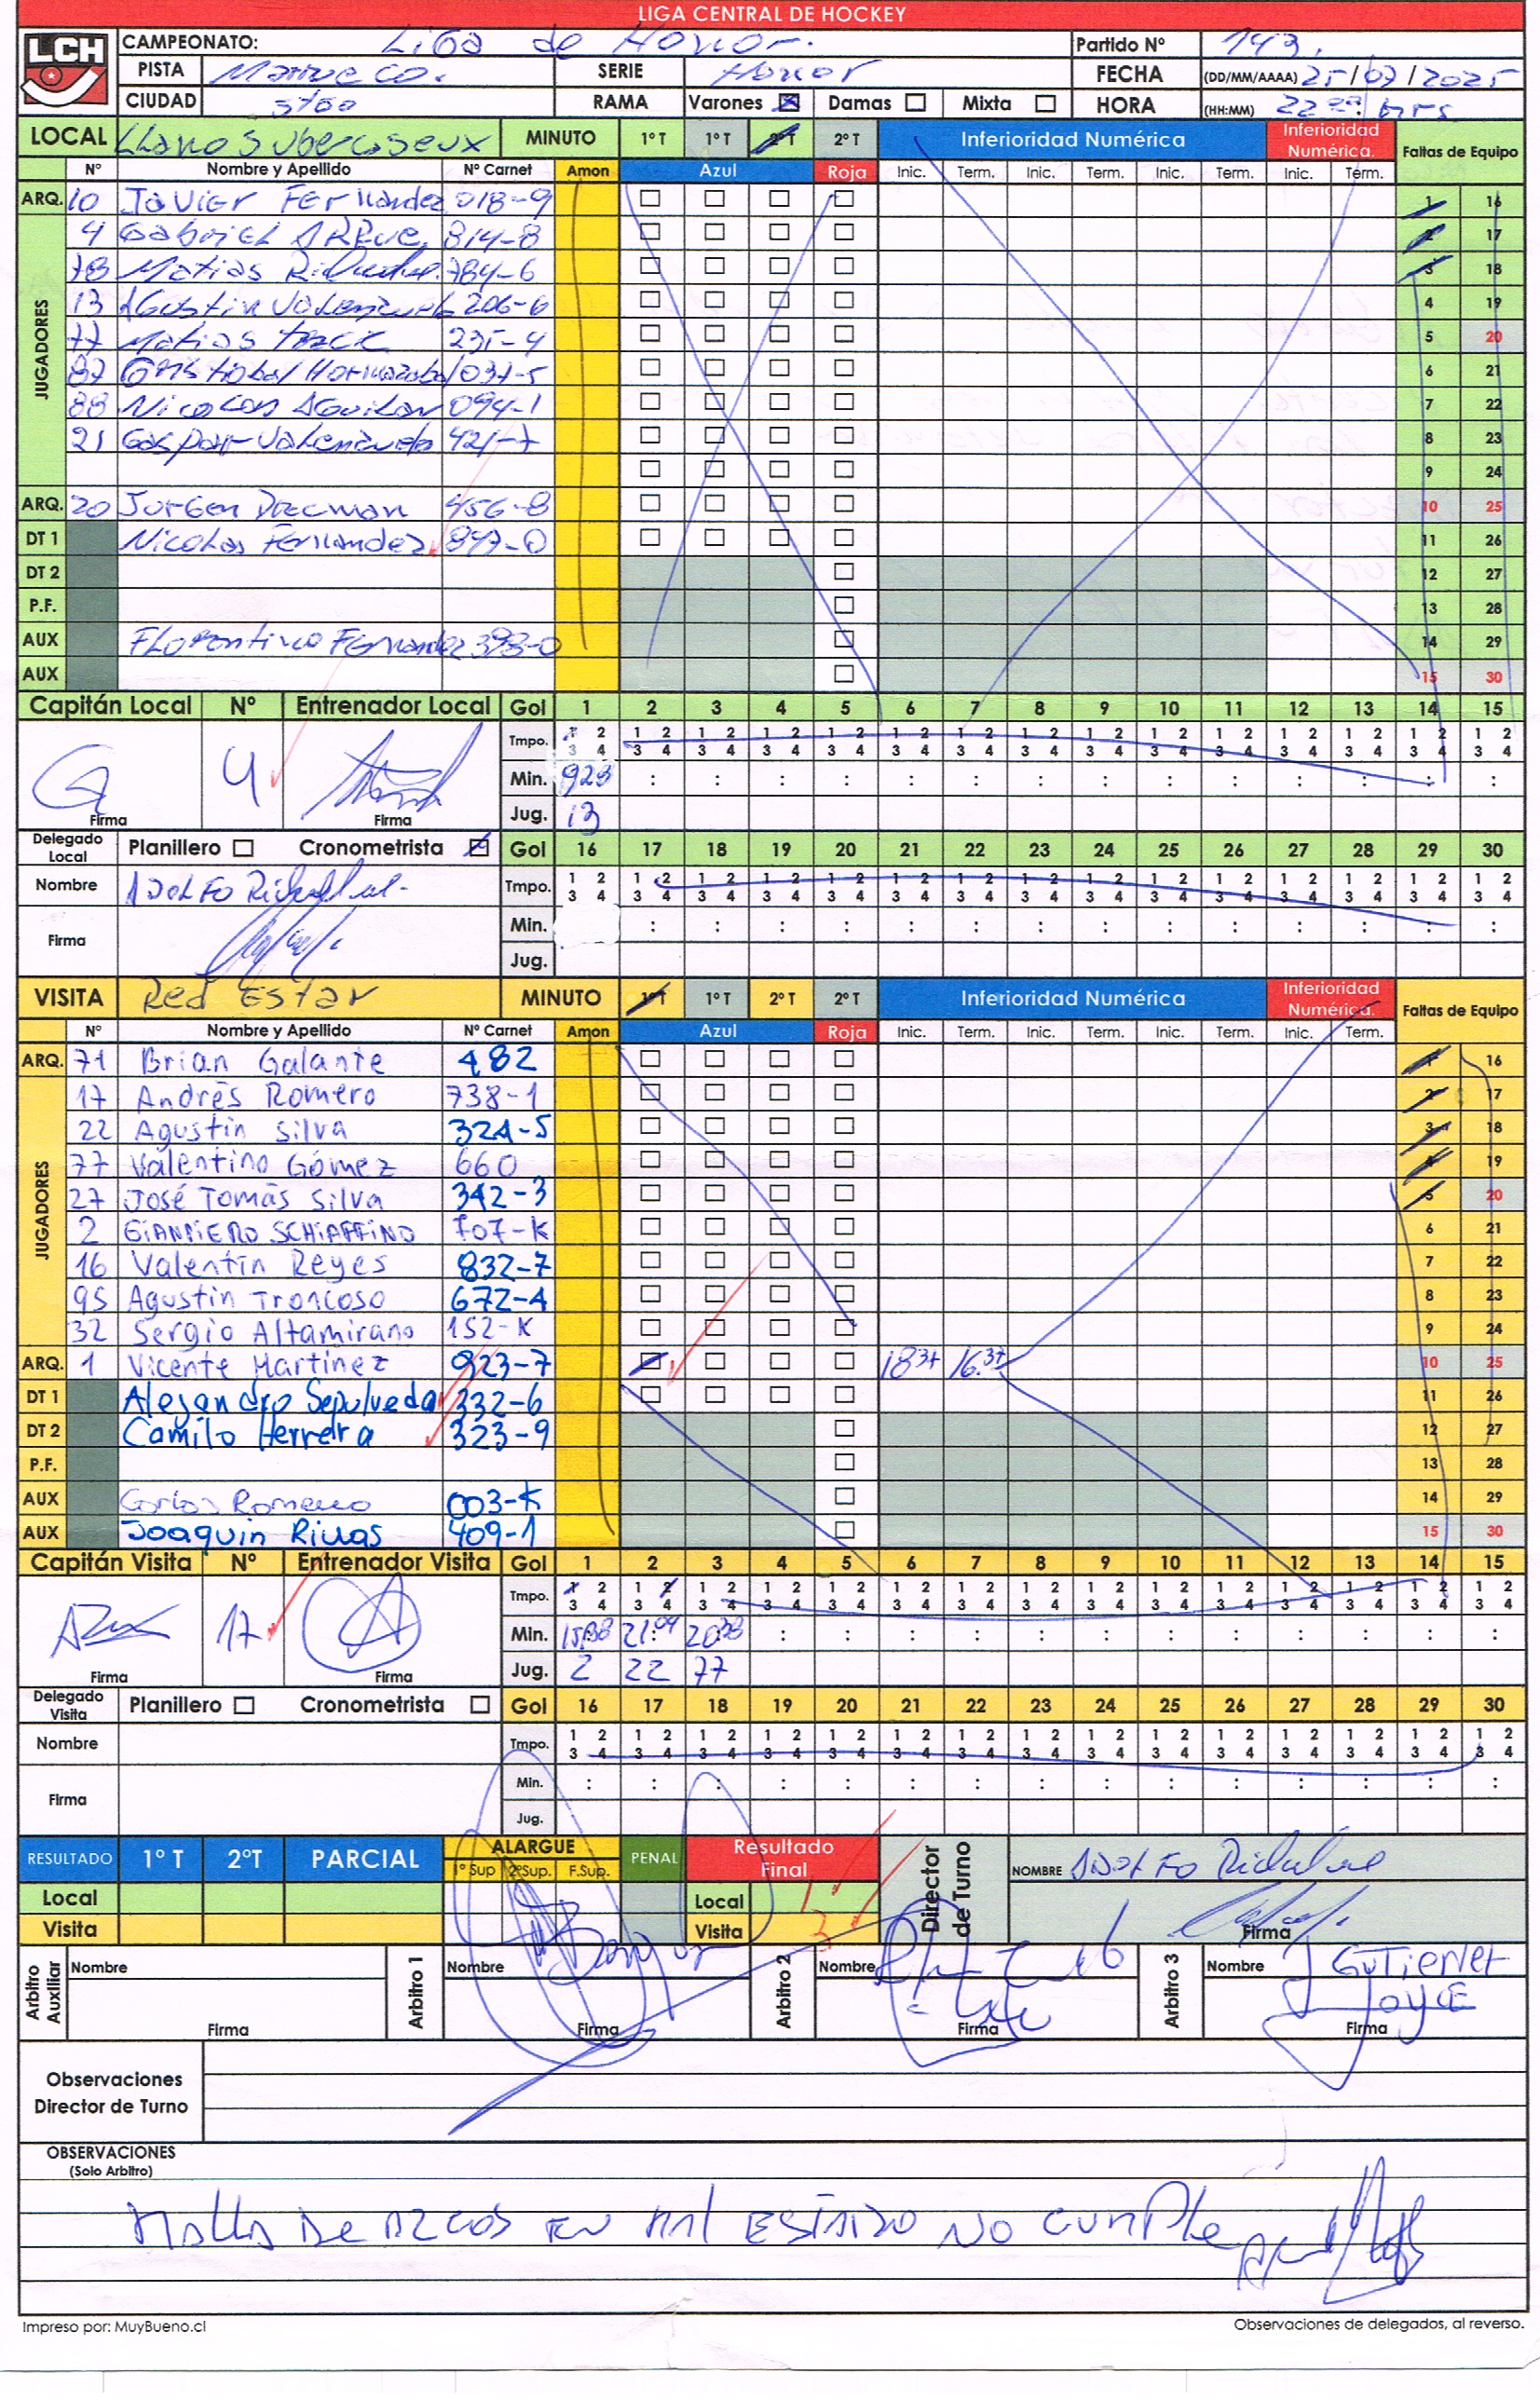 LIGA CENTRAL DE HOCKEY
LCH
CAMPEONATO: Liga de Honor.
Partido Nº 143.
PISTA
SERIE Honor
FECHA (DD/MM/AAAA) 25/07/2025
CIUDAD Stgo
RAMA Varones ☒ Damas ☐ Mixta ☐
HORA (HH:MM) 22 hrs
LOCAL Llano Subercaseux MINUTO 1º T 1º T 2º T 2º T Inferioridad Numérica Inferioridad Numérica. Faltas de Equipo
Nº Nombre y Apellido Nº Carnet Amon Azul Roja Inic. Term. Inic. Term. Inic. Term. Inic. Term.
JUGADORES
ARQ. 10 Javier Fernandez 018-9 1 16
4 Gabriel 814-8 2 17
78 Matias 784-6 3 18
13 Agustin Valenzuela 206-6 4 19
77 Matias 235-4 5 20
87 Cristobal Hormazabal 037-5 6 21
88 Nicolas Aguilar 094-1 7 22
21 Gaspar Valenzuela 421-7 8 23
9 24
ARQ. 20 Jurgen 456-8 10 25
DT 1 Nicolas Fernandez 847-0 11 26
DT 2 12 27
P.F. 13 28
AUX Florentino Fernandez 393-0 14 29
AUX 15 30
Capitán Local Nº Entrenador Local Gol 1 2 3 4 5 6 7 8 9 10 11 12 13 14 15
Tmpo. 1 2 3 4
4
Min. 928 : : : : : : : : : : : : : :
Firma Firma Jug. 13
Delegado Local Planillero ☐ Cronometrista ☒ Gol 16 17 18 19 20 21 22 23 24 25 26 27 28 29 30
Nombre Adolfo Tmpo. 1 2 3 4
Firma Min. : : : : : : : : : : : : : :
Jug.
VISITA Red Estar MINUTO 1º T 1º T 2º T 2º T Inferioridad Numérica Inferioridad Numérica. Faltas de Equipo
Nº Nombre y Apellido Nº Carnet Amon Azul Roja Inic. Term. Inic. Term. Inic. Term. Inic. Term.
JUGADORES
ARQ. 71 Brian Galante 482 1 16
17 Andrés Romero 738-1 2 17
22 Agustin Silva 324-5 3 18
77 Valentino Gómez 660 4 19
27 José Tomás Silva 342-3 5 20
2 GIANPIERO SCHIAFFINO 707-K 6 21
16 Valentín Reyes 832-7 7 22
95 Agustin Troncoso 672-4 8 23
32 Sergio Altamirano 152-K 9 24
ARQ. 1 Vicente Martínez 923-7 18 37 16.37 10 25
DT 1 Alejandro Sepulveda 332-6 11 26
DT 2 Camilo Herrera 323-9 12 27
P.F. 13 28
AUX Carlos Romero 003-K 14 29
AUX Joaquin Rivas 409-1 15 30
Capitán Visita Nº Entrenador Visita Gol 1 2 3 4 5 6 7 8 9 10 11 12 13 14 15
Tmpo. 1 2 3 4
17
Min. 15:38 21:04 20:38 : : : : : : : : : : : :
Firma Firma Jug. 2 22 77
Delegado Visita Planillero ☐ Cronometrista ☐ Gol 16 17 18 19 20 21 22 23 24 25 26 27 28 29 30
Nombre Tmpo. 1 2 3 4
Firma Min. : : : : : : : : : : : : : : :
Jug.
RESULTADO 1º T 2ºT PARCIAL ALARGUE 1º Sup 2ºSup. F.Sup. PENAL Resultado Final Director de Turno NOMBRE Adolfo
Local Local 1
Visita Visita 3 Firma
Arbitro Auxiliar Nombre Arbitro 1 Nombre Arbitro 2 Nombre Arbitro 3 Nombre J Gutierrez
Joyce
Firma Firma Firma Firma
Observaciones
Director de Turno
OBSERVACIONES
(Solo Arbitro)
Malla de arcos en mal estado no cumple
Impreso por: MuyBueno.cl
Observaciones de delegados, al reverso.